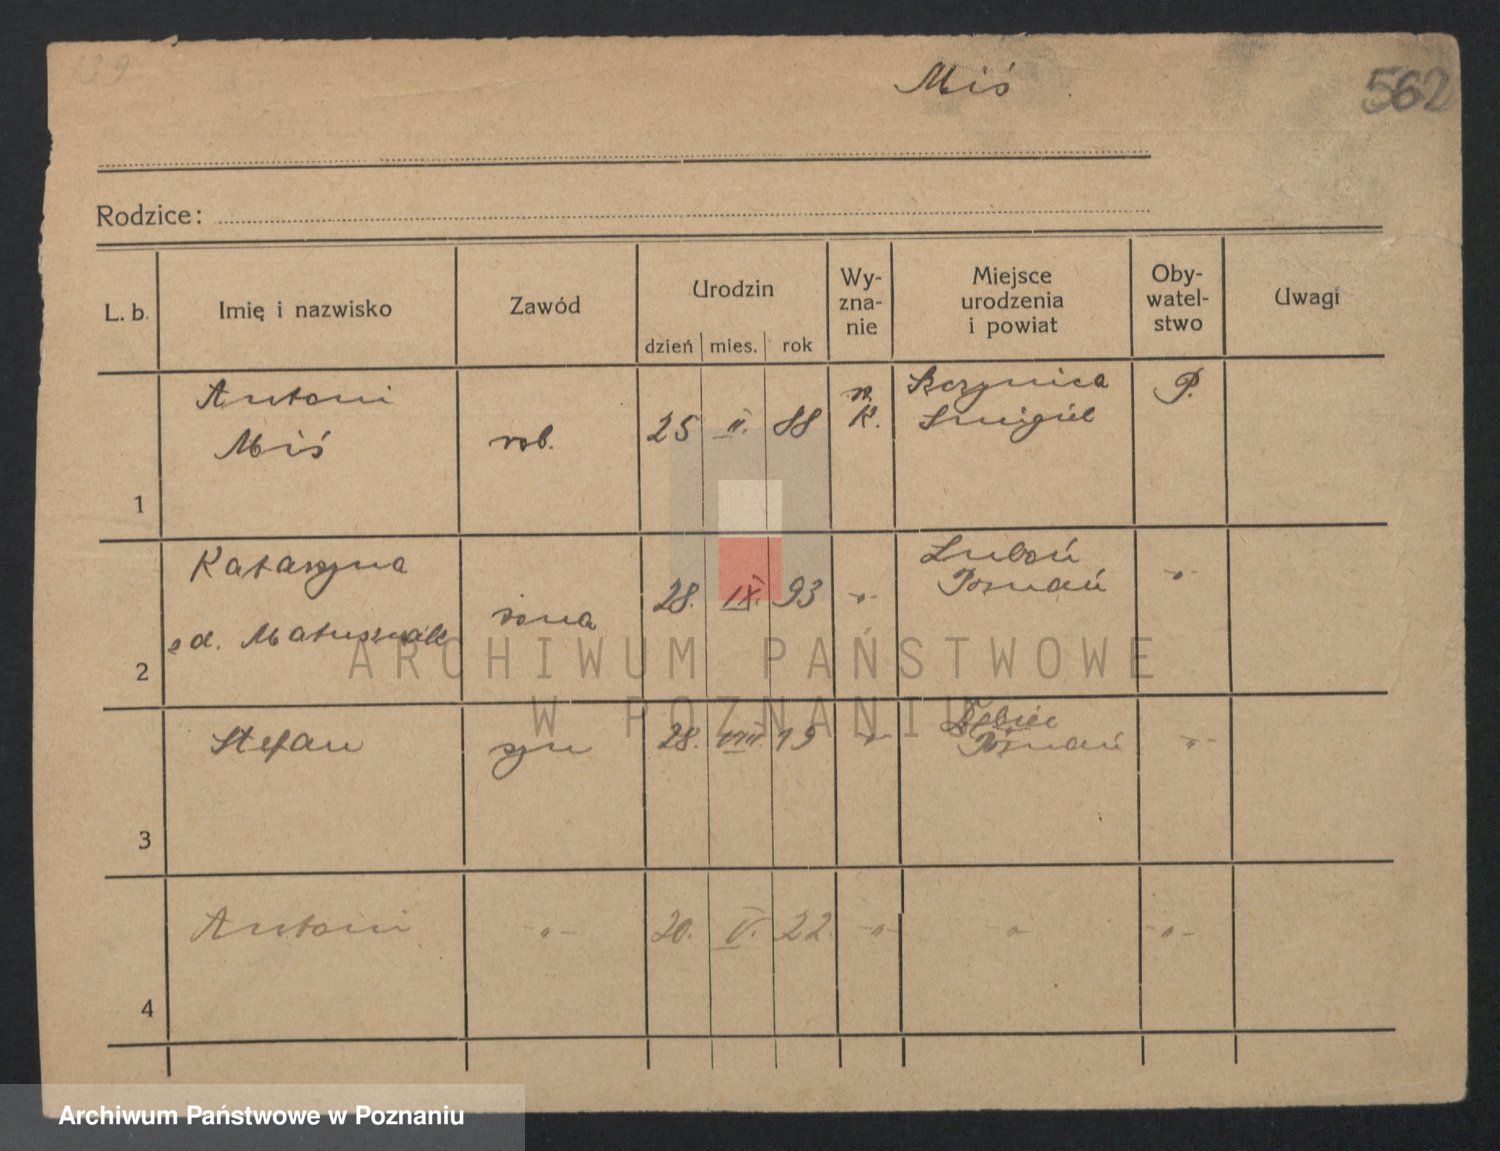 139
Miś
562
Rodzice:
L. b.
Imię i nazwisko
Zawód
Urodzin
dzień mies. rok
Wy-
zna-
nie
Miejsce
urodzenia
i powiat
Oby-
watel-
stwo
Uwagi
1
Antoni
Miś
rob.
25 II. 88
rz.
K.
Śmigiel
P.
2
Katarzyna
zd. Matuszwak
żona
28. IX. 93
-"-
Luboń
Poznań
-"-
3
Stefan
syn
28. VIII 19
-"-
Dębiec
Poznań
-"-
4
Antoni
-"-
20. V. 22
-"-
"
-"-
ARCHIWUM PAŃSTWOWE
W POZNANIU
Archiwum Państwowe w Poznaniu